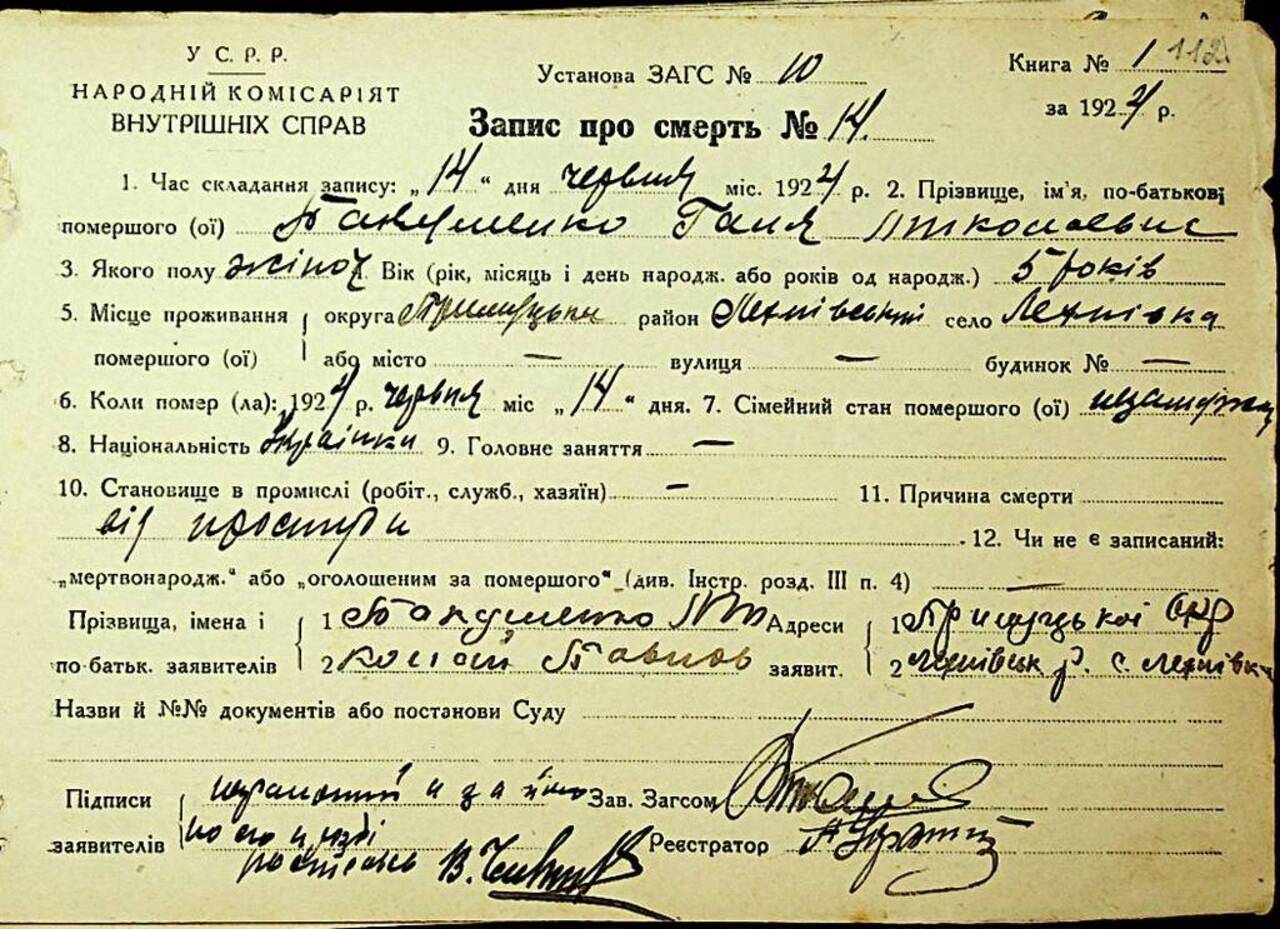 У С. Р. Р.
НАРОДНІЙ КОМІСАРІЯТ
ВНУТРІШНІХ СПРАВ
Установа ЗАГС № 10
Книга № 1 112
за 1924 р.
Запис про смерть № 14.
1. Час складання запису: „14“ дня червня міс. 1924 р. 2. Прізвище, ім'я, по-батькові
помершого (ої) Галя
3. Якого полу жіноч Вік (рік, місяць і день народж. або років од народж.) 5 років
5. Місце проживання округа Прилуцька район Лехнівський село Лехнівка
помершого (ої) або місто — вулиця — будинок № —
6. Коли помер (ла): 1924 р. червня міс „14“ дня. 7. Сімейний стан помершого (ої)
8. Національність Українка 9. Головне заняття —
10. Становище в промислі (робіт., служб., хазяїн) - 11. Причина смерти
від простуди
12. Чи не є записаний:
„мертвонародж.“ або „оголошеним за помершого“ (див. Інстр. розд. III п. 4) —
Прізвища, імена і 1 Адреси 1 Прилуцької окр
по батьк. заявителів 2 заявит. 2 Лехнівськ р. с. Лехнівка
Назви й №№ документів або постанови Суду
Підписи неграмотний а за його Зав. Загсом
заявителів по его прозбі Реєстратор
росписавсь В.